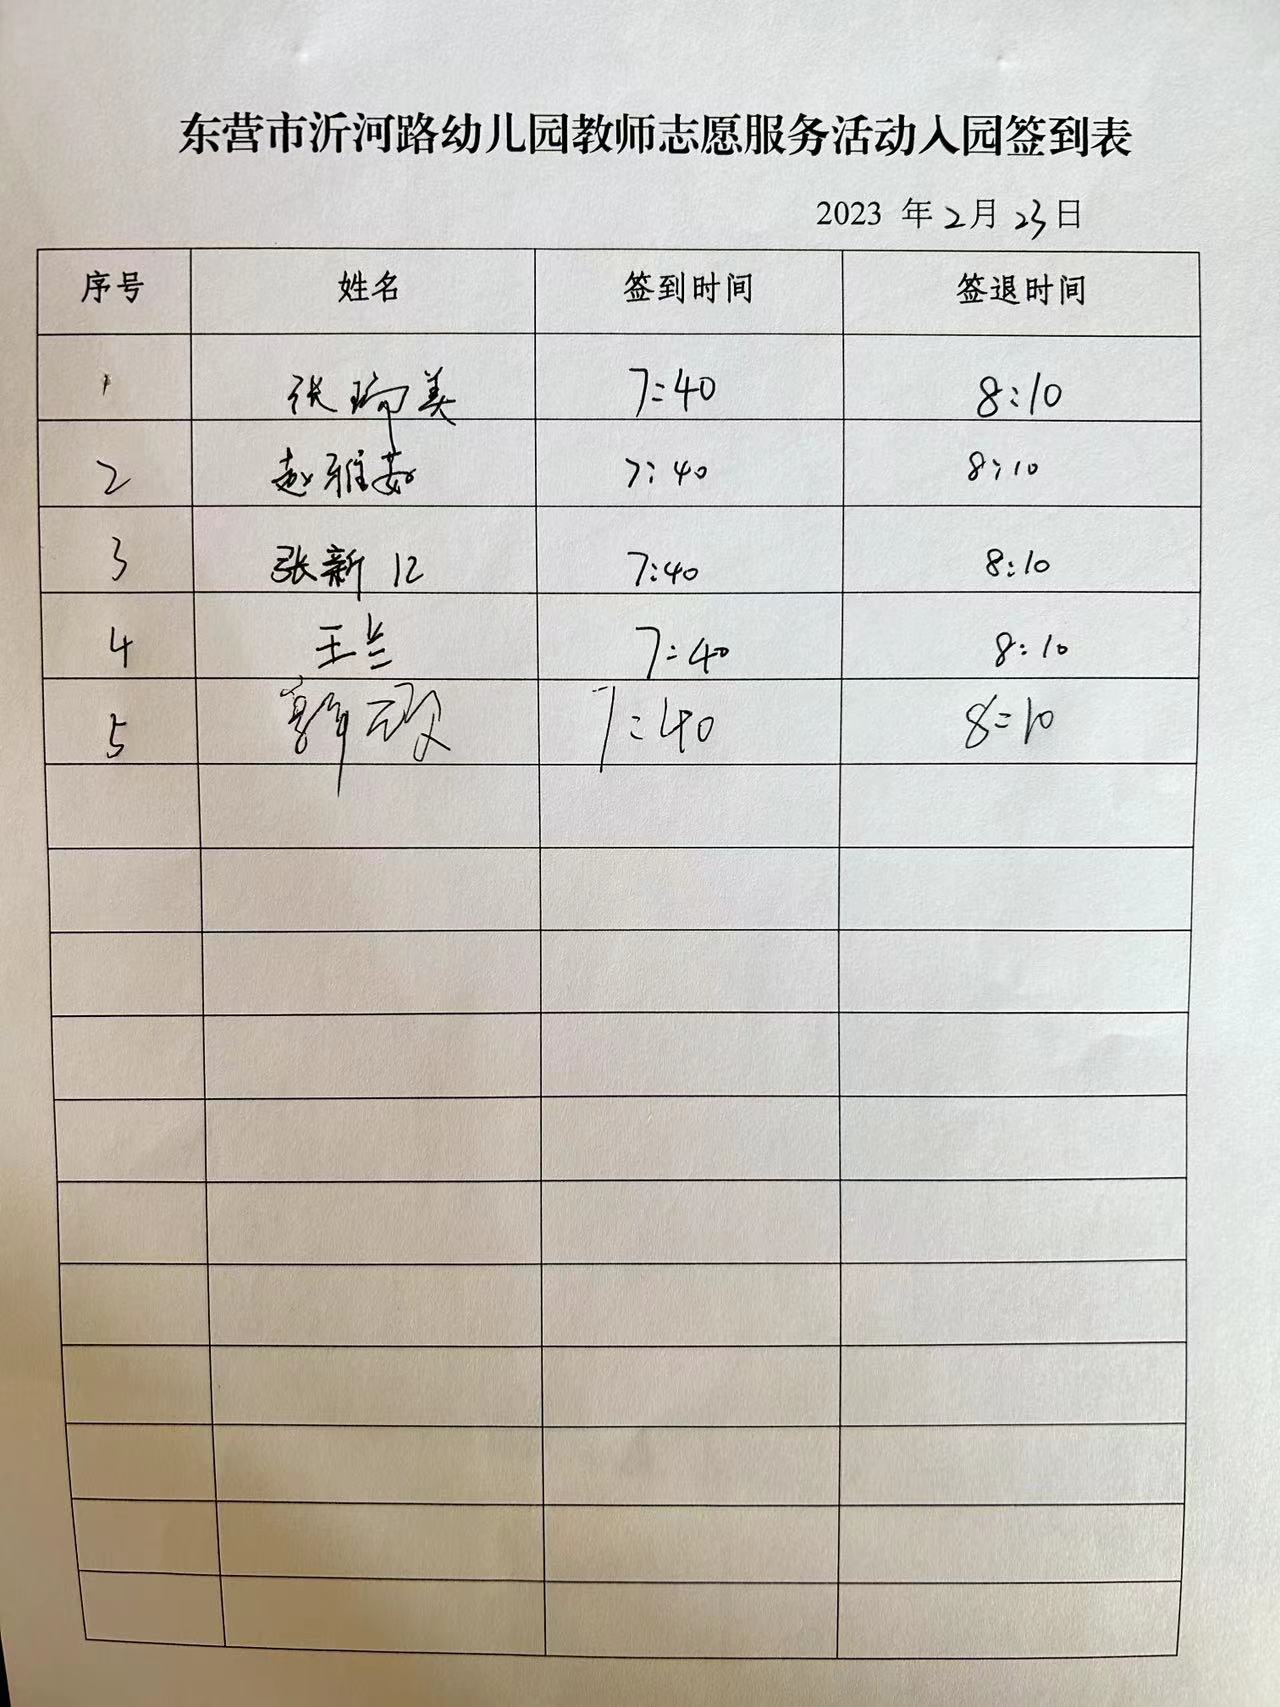 东营市沂河路幼儿园教师志愿服务活动入园签到表
2023 年 2月 23日
序号 姓名 签到时间 签退时间
1 张瑞美 7:40 8:10
2 赵雅茹 7:40 8:10
3 张新 7:40 8:10
4 王兰 7:40 8:10
5 郭 7:40 8:10